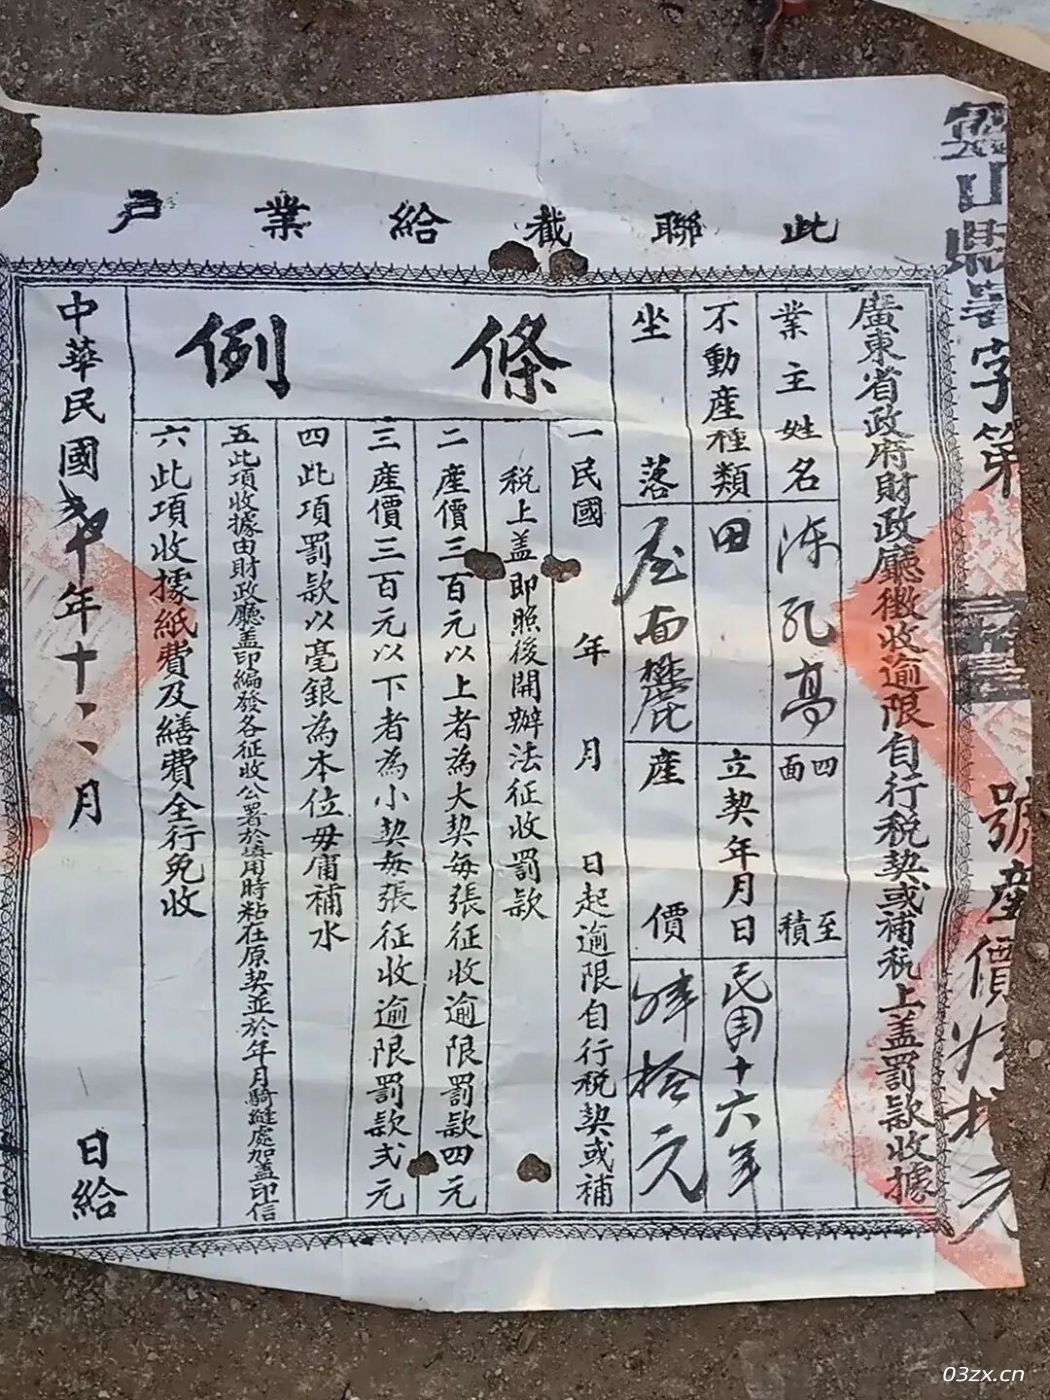 此聯截給業戶
靈山縣字第
號產價肆拾元
廣東省政府財政廳徵收逾限自行稅契或補稅上盖罰款收據
業主姓名
陳孔亭
四至
面積
不動產種類
田
立契年月日
民國十六年
坐落
產價
肆拾元
條例
一民國 年 月 日起逾限自行稅契或補
稅上盖即照後開辦法征收罰款
二產價三百元以上者為大契每張征收逾限罰款四元
三產價三百元以下者為小契每張征收逾限罰款弍元
四此項罰款以毫銀為本位毋庸補水
五此項收據由財政廳盖印編發各征收公署於填用時粘在原契並於年月騎縫處加盖印信
六此項收據紙費及繕費全行免收
中華民國 年十 月 日給
03zx.cn